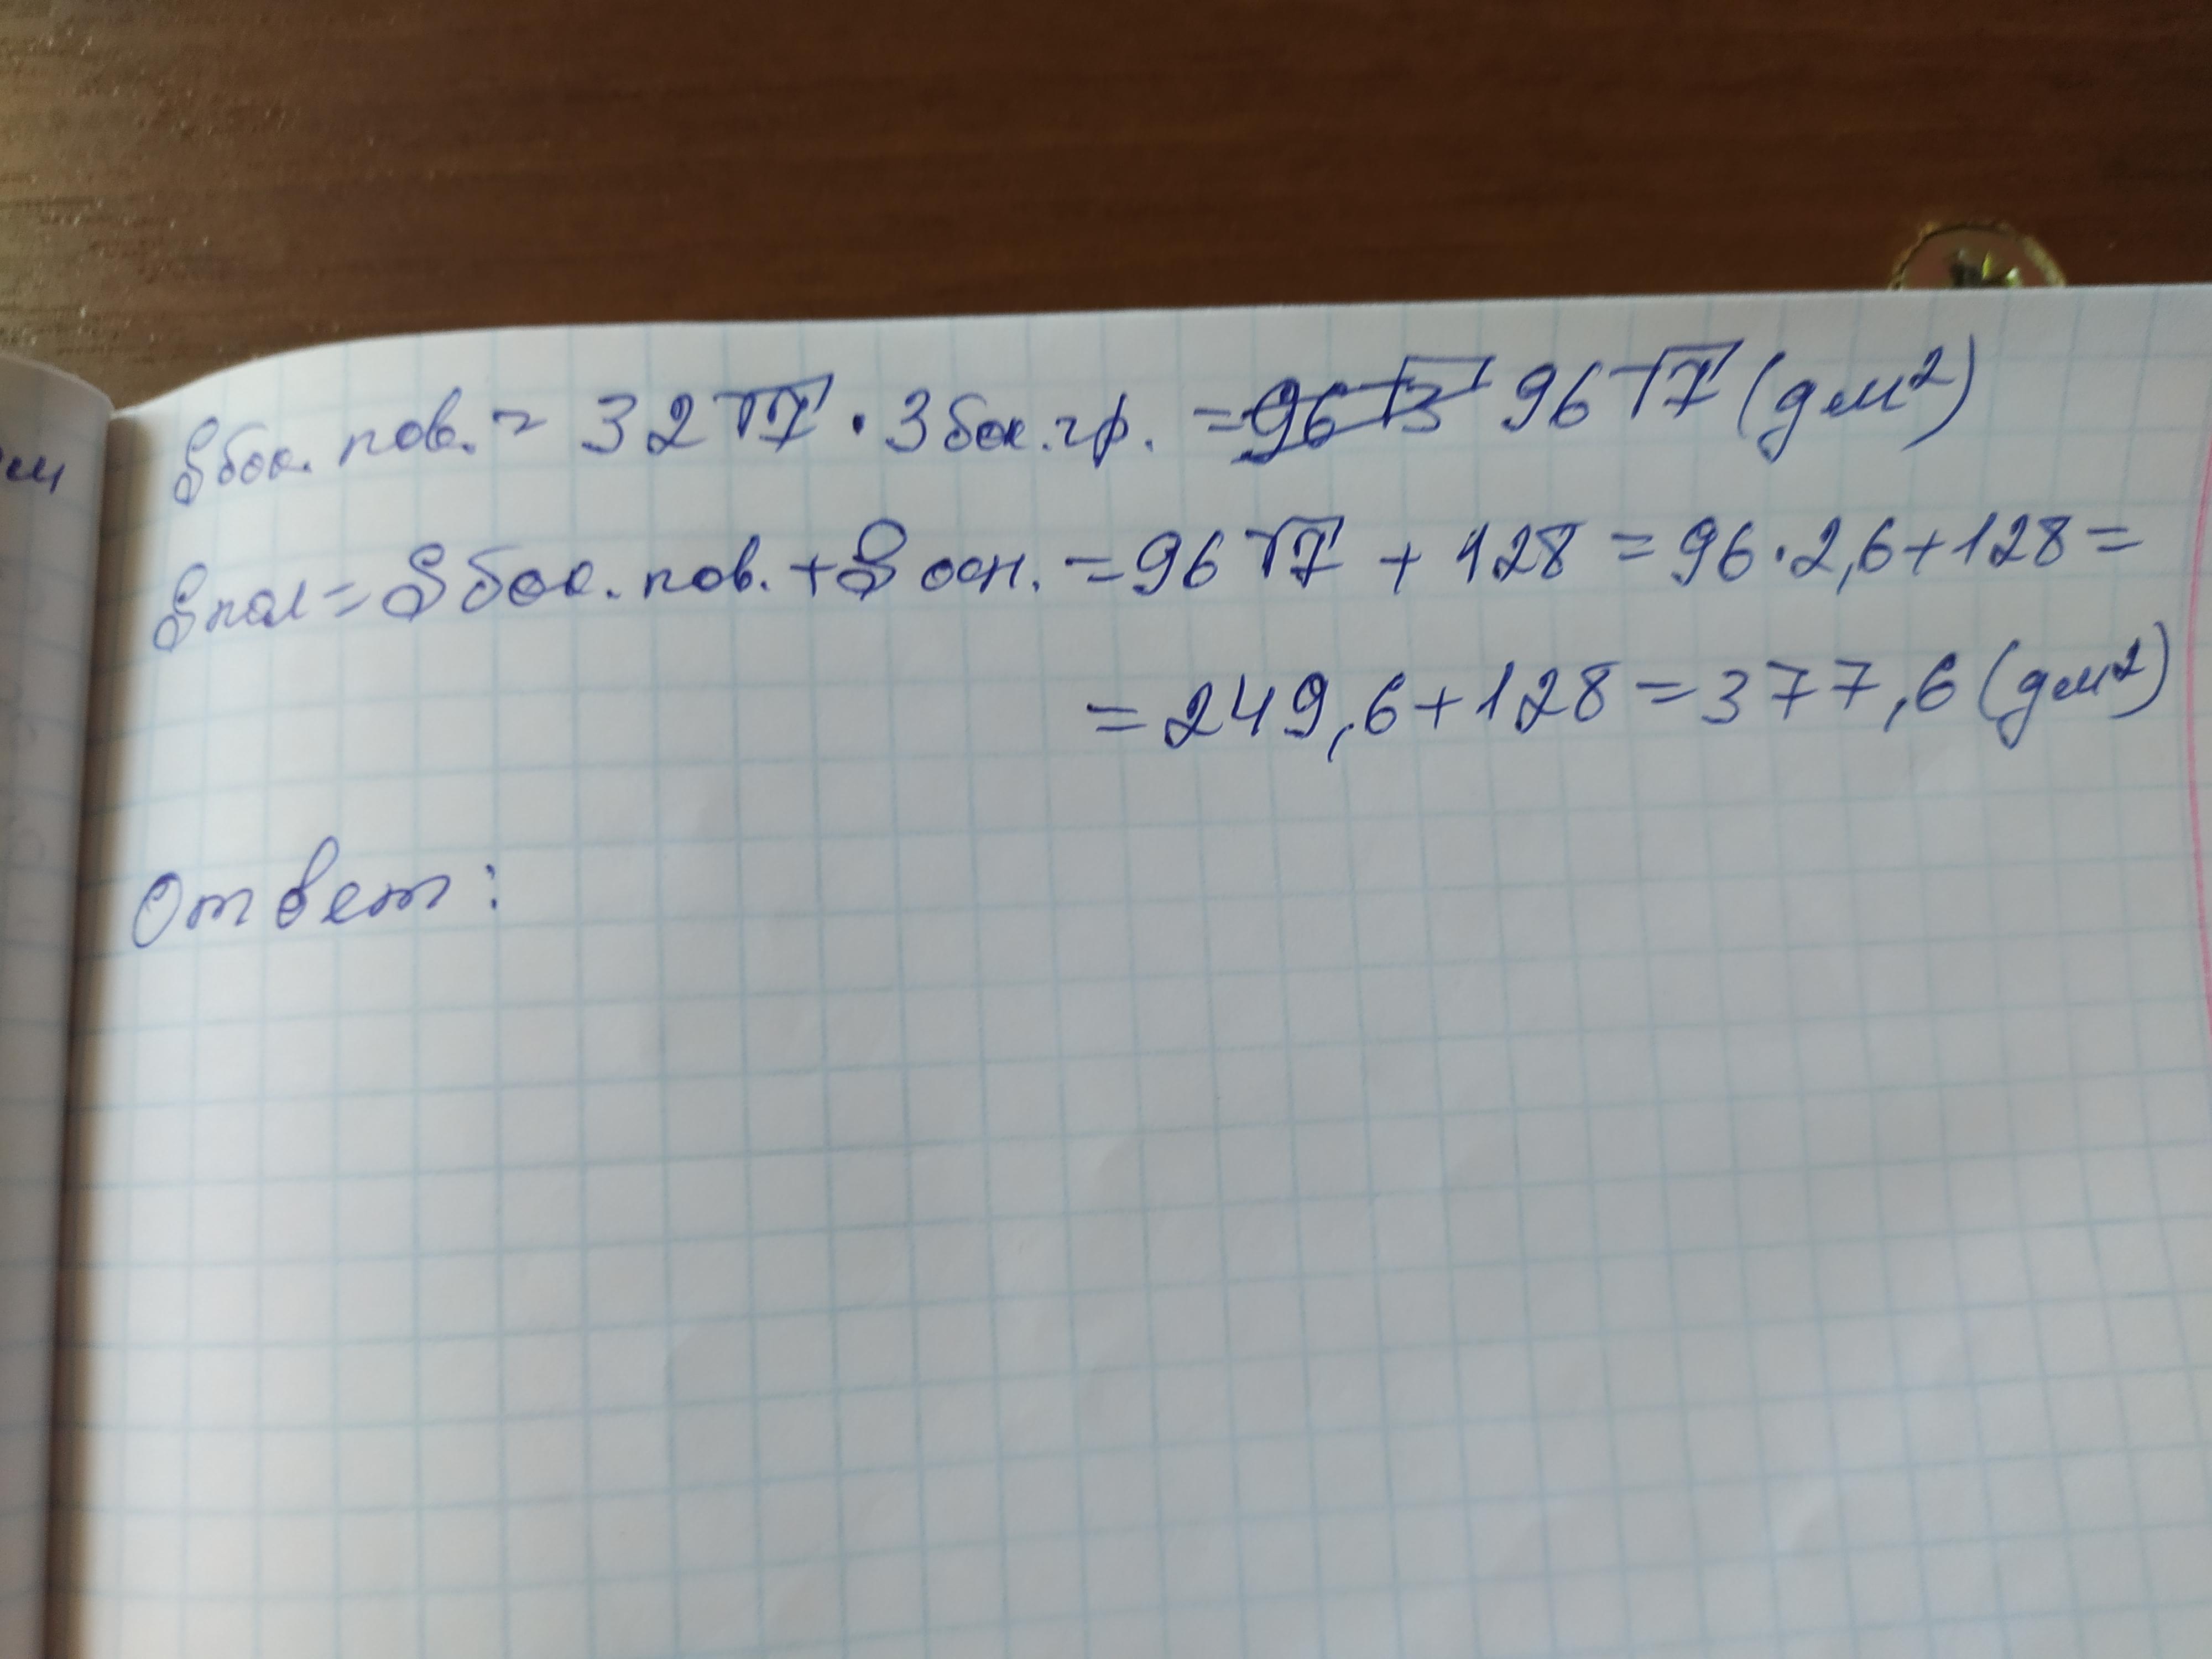 Sбок. пов. = 32√7 · 3 бок. гр. = 96√3 96√7 (дм²)
Sпол = Sбок. пов. + Sосн. = 96√7 + 128 = 96 · 2,6 + 128 =
= 249,6 + 128 = 377,6 (дм²)
Ответ: